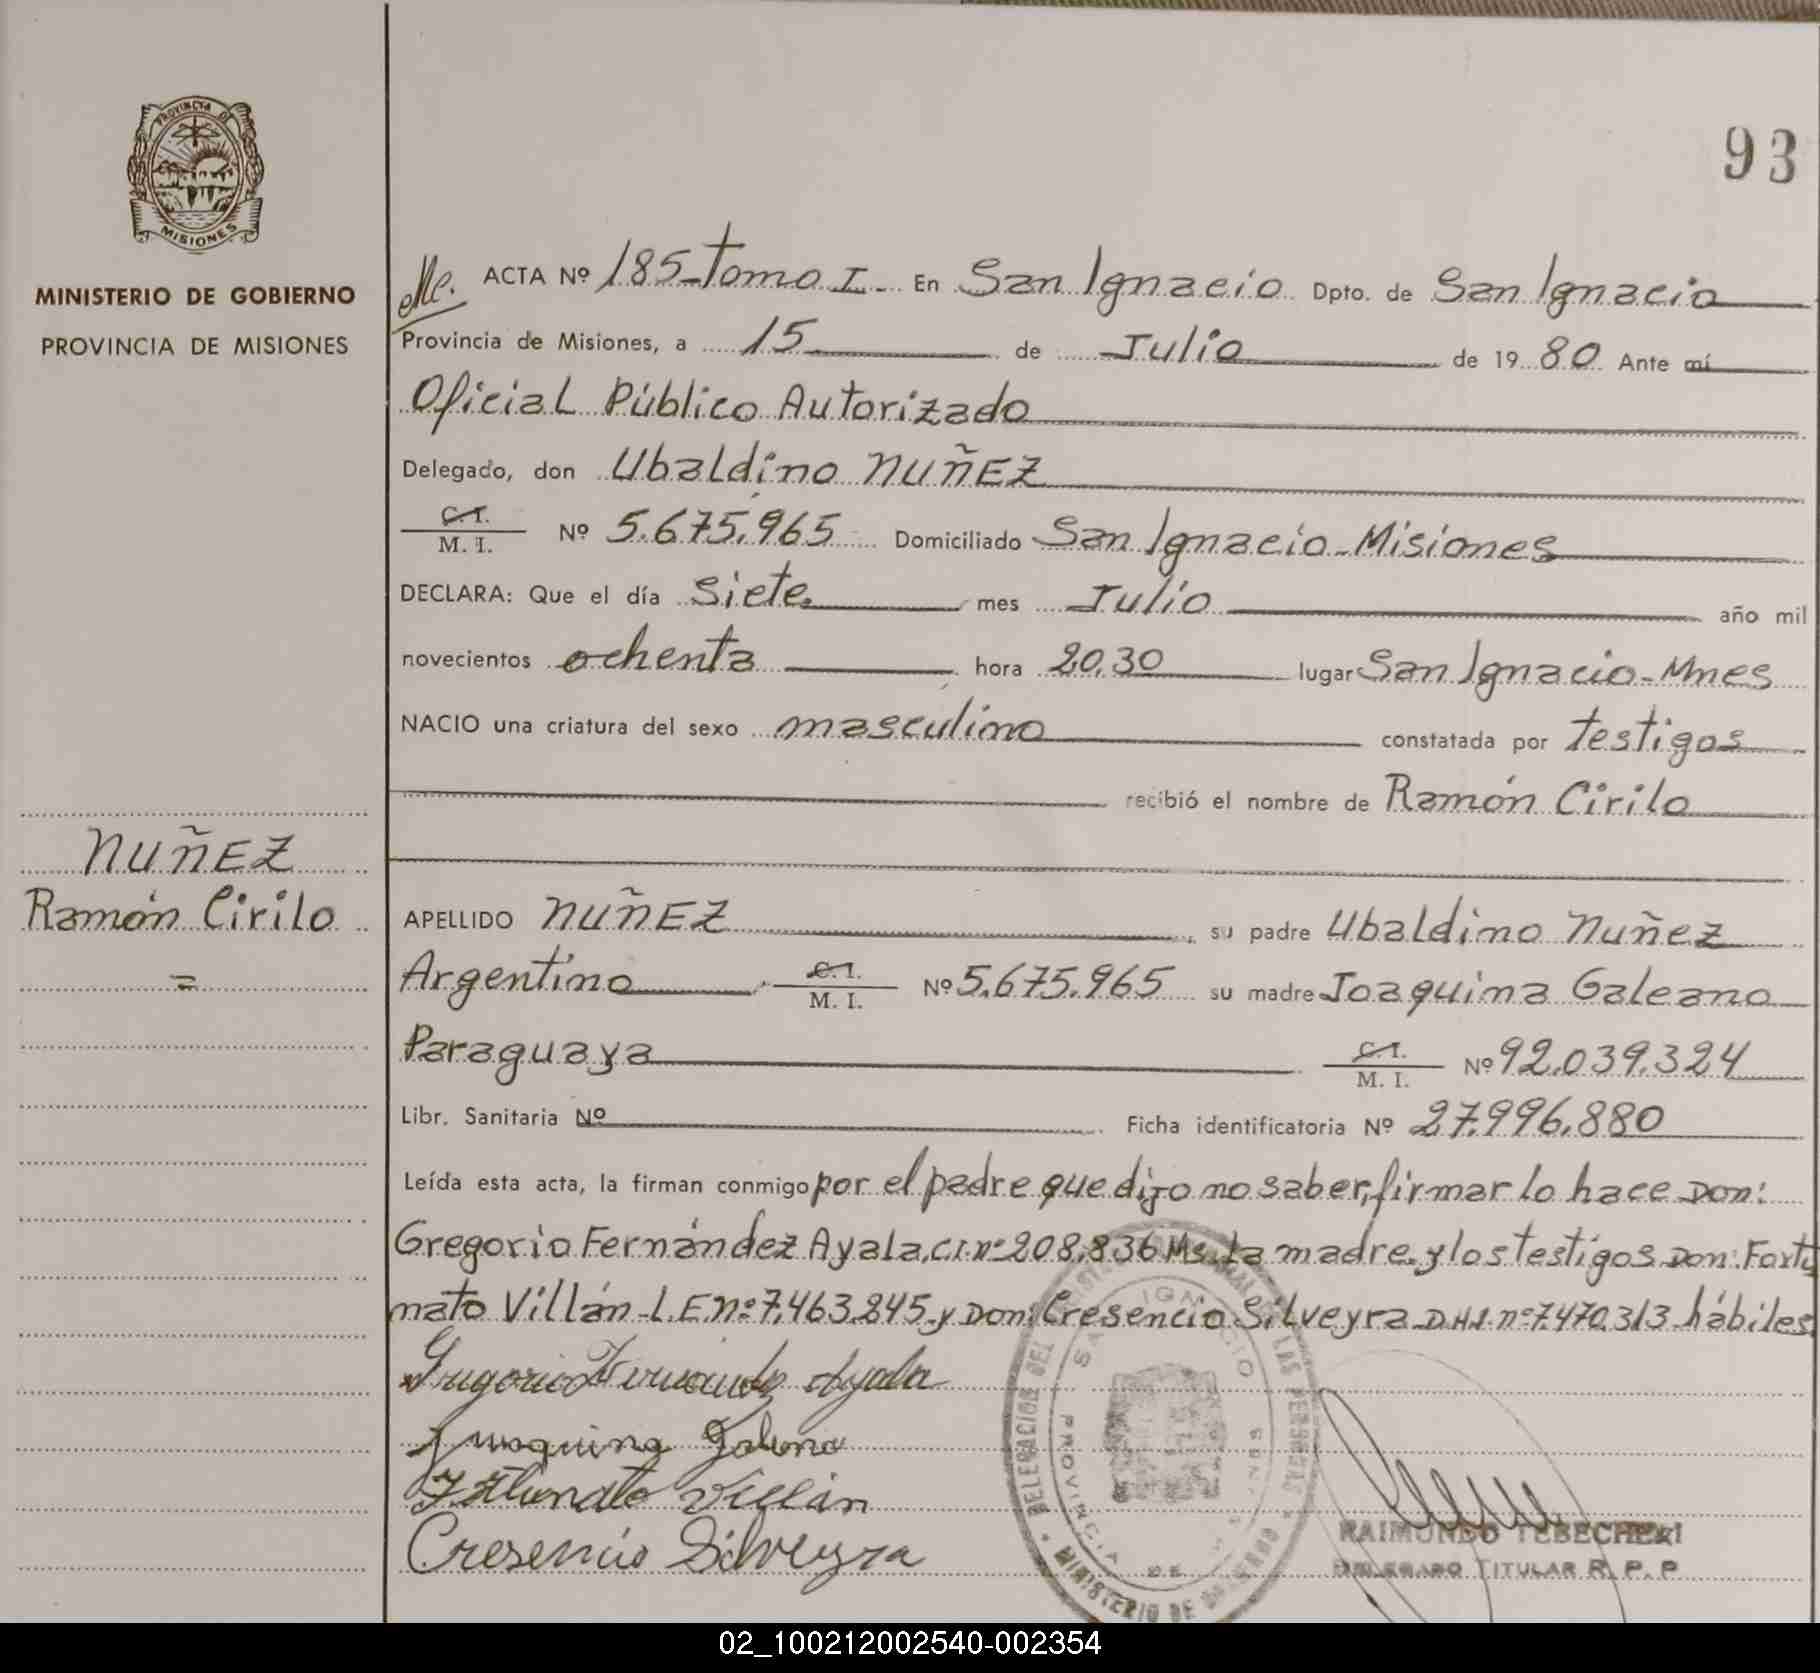 PROVINCIA DE
MISIONES
MINISTERIO DE GOBIERNO
PROVINCIA DE MISIONES
NUÑEZ
Ramón Cirilo
=
93
ACTA Nº 185-Tomo I. En San Ignacio Dpto. de San Ignacio
Provincia de Misiones, a 15 de Julio de 1980 Ante mí
Oficial Público Autorizado
Delegado, don Ubaldino NUÑEZ
C.I.
M. I. Nº 5.675.965 Domiciliado San Ignacio-Misiones
DECLARA: Que el día siete mes Julio año mil
novecientos ochenta hora 20.30 lugar San Ignacio-Mnes
NACIO una criatura del sexo masculino constatada por testigos
recibió el nombre de Ramón Cirilo
APELLIDO NUÑEZ, su padre Ubaldino Nuñez
Argentino C.I.
M. I. Nº 5.675.965 su madre Joaquina Galeano
Paraguaya C.I.
M. I. Nº 92.039.324
Libr. Sanitaria Nº Ficha identificatoria Nº 27.996.880
Leída esta acta, la firman conmigo por el padre que dijo no saber, firmar lo hace Don:
Gregorio Fernández Ayala, C.I. nº 208.836 Ms. La madre y los testigos Don: Fortu
nato Villán-L.E. nº 7.463.845 y Don: Cresencio Silveyra D.N.I. nº 7.470.313 hábiles
Gregorio Fernandez Ayala
Joaquina Galeno
Fortunato Villán
Cresencio Silveyra
DELEGACION DEL DE LAS PERSONAS
MINISTERIO DE GOBIERNO
SAN IGNACIO
PROVINCIA DE MISIONES
RAIMUNDO TEBECHERI
DELEGADO TITULAR R. P. P
02_100212002540-002354